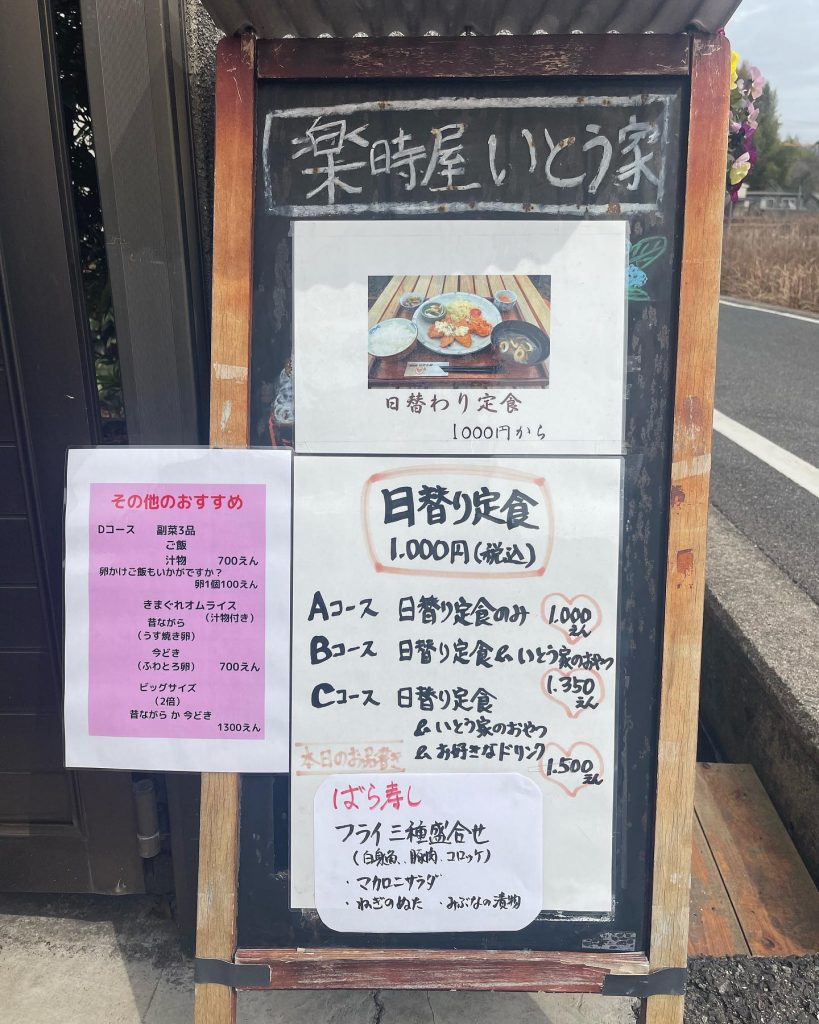 楽時屋 いとう家
日替わり定食
1000円から
日替り定食
1.000円(税込)
Aコース 日替り定食のみ 1.000えん
Bコース 日替り定食&いとう家のおやつ
1.350えん
Cコース 日替り定食
&いとう家のおやつ
&お好きなドリンク
1.500えん
本日のお品書き
ばら寿し
フライ三種盛合せ
(白身魚、豚肉、コロッケ)
・マカロニサラダ
・ねぎのぬた ・みぶなの漬物
その他のおすすめ
Dコース 副菜3品
ご飯
汁物 700えん
卵かけご飯もいかがですか?
卵1個100えん
きまぐれオムライス
(汁物付き)
昔ながら
(うす焼き卵)
今どき
(ふわとろ卵) 700えん
ビッグサイズ
(2倍)
昔ながら か 今どき
1300えん